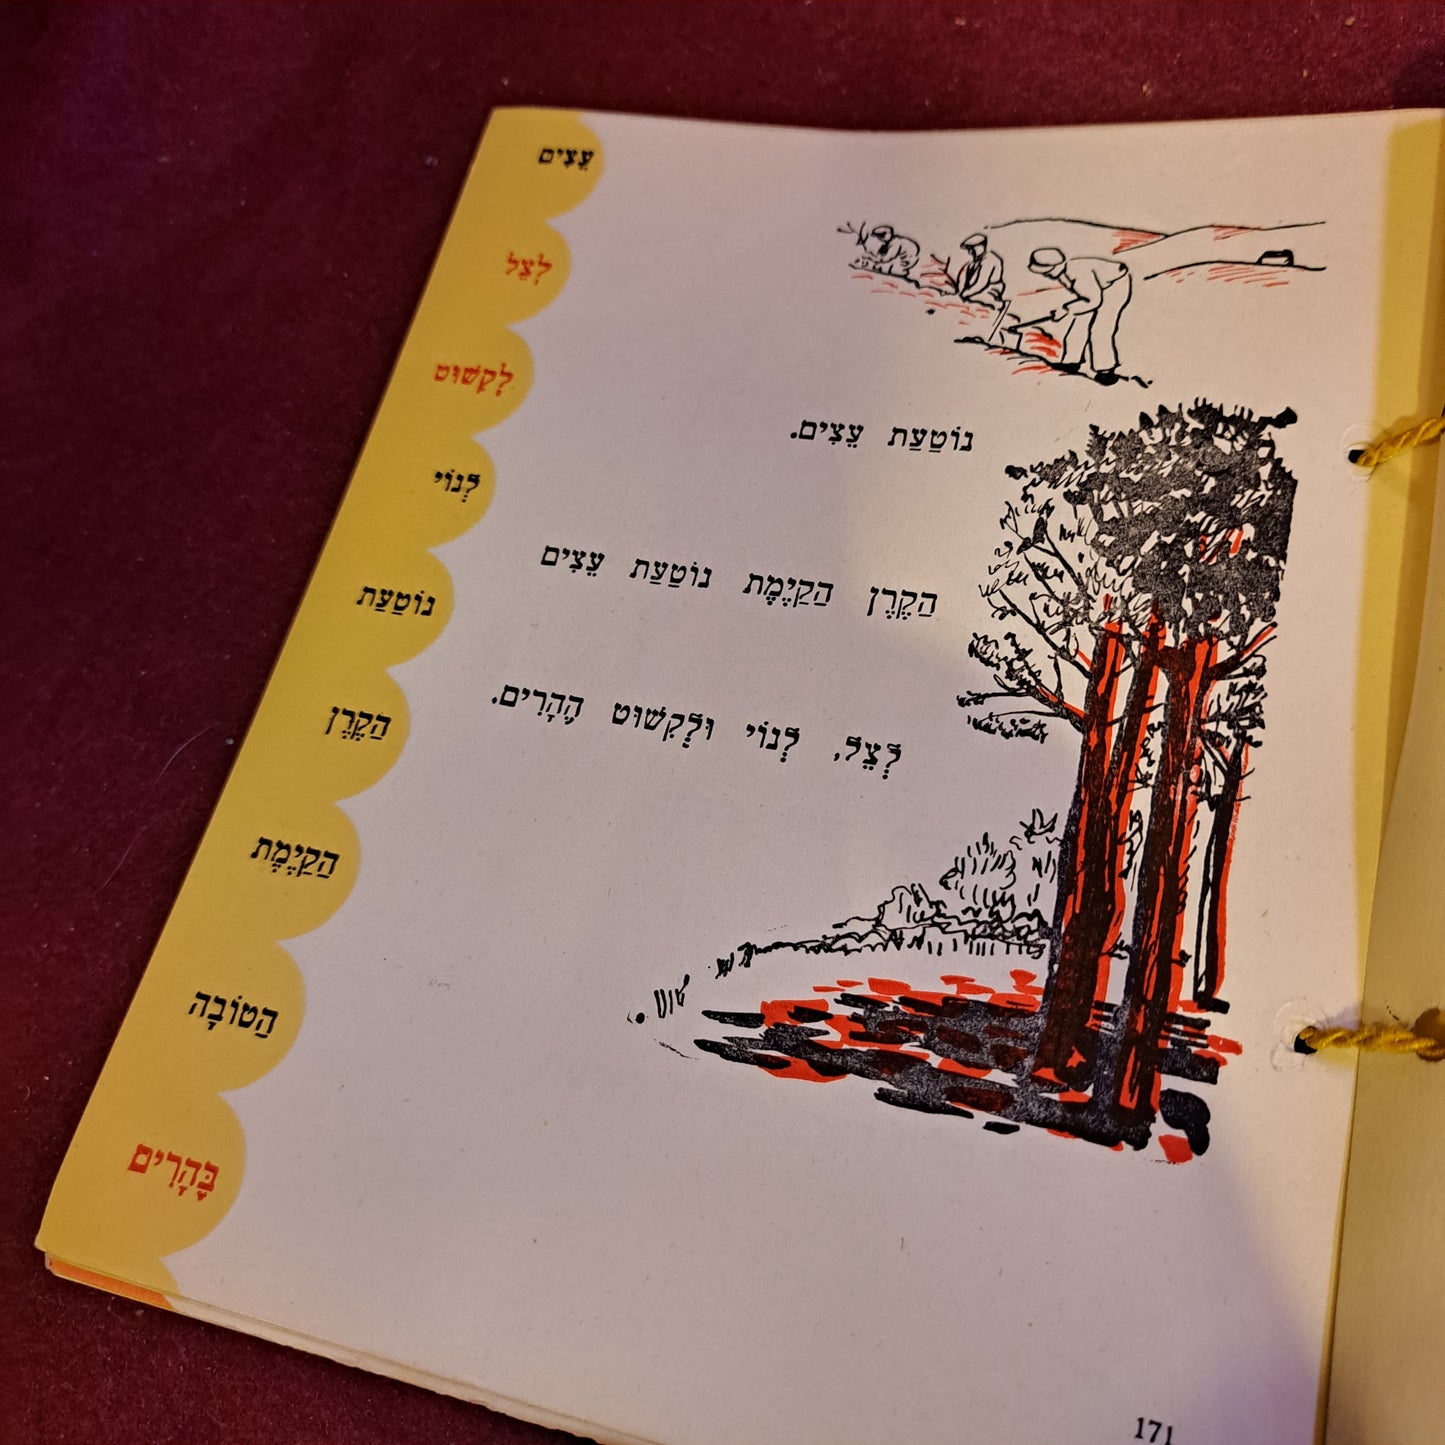 עֵצִים
לְצֵל
לְקִשּׁוּט
לְנוֹי
נוֹטַעַת
הַקֶּרֶן
הַקַּיֶּמֶת
הַטּוֹבָה
בֶּהָרִים
נוֹטַעַת עֵצִים.
הַקֶּרֶן הַקַּיֶּמֶת נוֹטַעַת עֵצִים
לְצֵל, לְנוֹי וּלְקִשּׁוּט הֶהָרִים.
171